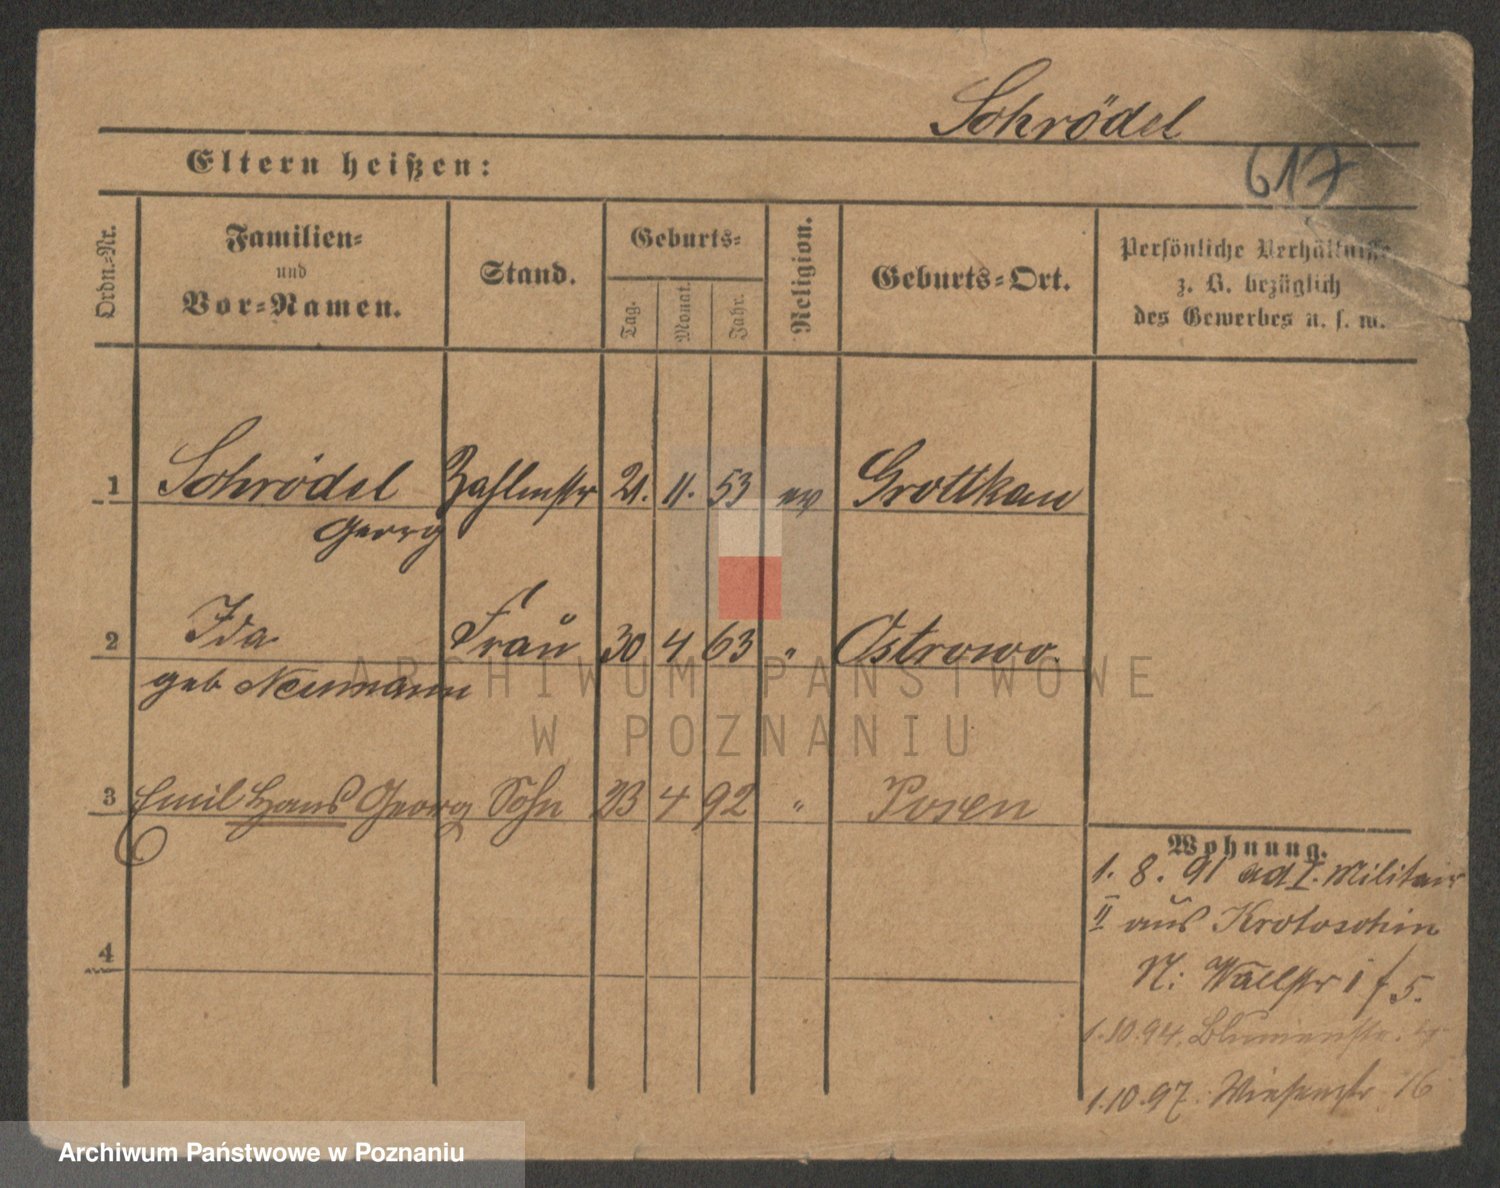 Schrödel
617
Eltern heißen:
Ordn.-Nr.
Familien-
und
Vor-Namen.
Stand.
Geburts-
Tag.
Monat.
Jahr.
Religion.
Geburts-Ort.
Persönliche Verhältnisse
z. B. bezüglich
des Gewerbes u. s. w.
1 Schrödel Zahlmstr 21. 11. 53 ev Grottkau
Georg
2 Ida Frau 30 4 63 " Ostrowo.
geb Neumann
3 Emil Hans Georg Sohn 23 4 92 " Posen
4
Wohnung.
1. 8. 91 ad I. Militair
II aus Krotoschin
N: Wallstr 1 f 5.
1.10.94. Blumenstr.
1.10.97. Wiesenstr 16
ARCHIWUM PAŃSTWOWE
W POZNANIU
Archiwum Państwowe w Poznaniu